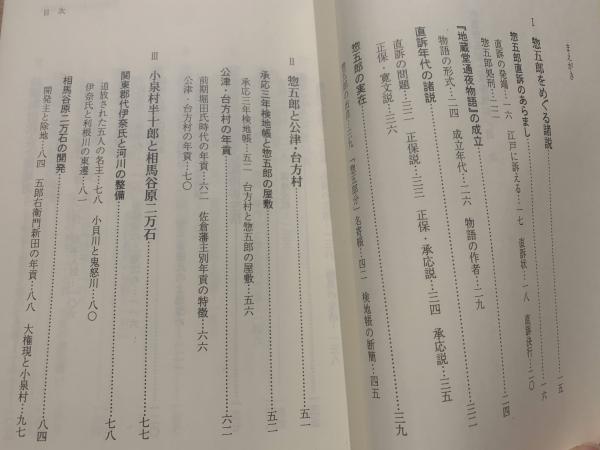 目次
まえがき
I 惣五郎をめぐる諸説……一五
惣五郎直訴のあらまし……一六
直訴の発端…一六 江戸に訴える…一七 直訴状…一八 直訴決行…二〇
惣五郎処刑…二二
『地蔵堂通夜物語』の成立……二四
物語の形式…二四 成立年代…二六 物語の作者…二九
直訴年代の諸説……三二
直訴の問題…三二 正保説…三三 正保・承応説…三四 承応説…三五
正保・寛文説…三六
惣五郎の実在……三九
「惣五郎分」名寄帳…四二 検地帳の断簡…四五
II 惣五郎と公津・台方村……五一
承応三年検地帳と惣五郎の屋敷……五二
承応三年検地帳…五二 台方村と惣五郎の屋敷…五六
公津・台方村の年貢……六二
前期堀田氏時代の年貢…六二 佐倉藩主別年貢の特徴…六六
公津・台方村の年貢…七〇
III 小泉村半十郎と相馬谷原二万石……七七
関東郡代伊奈氏と河川の整備……七八
追放された五人の名主…七八 小貝川と鬼怒川…八〇
伊奈氏と利根川の東遷…八一
相馬谷原二万石の開発……八四
開発主と除地…八四 五郎右衛門新田の年貢…八八 大権現と小泉村…九七